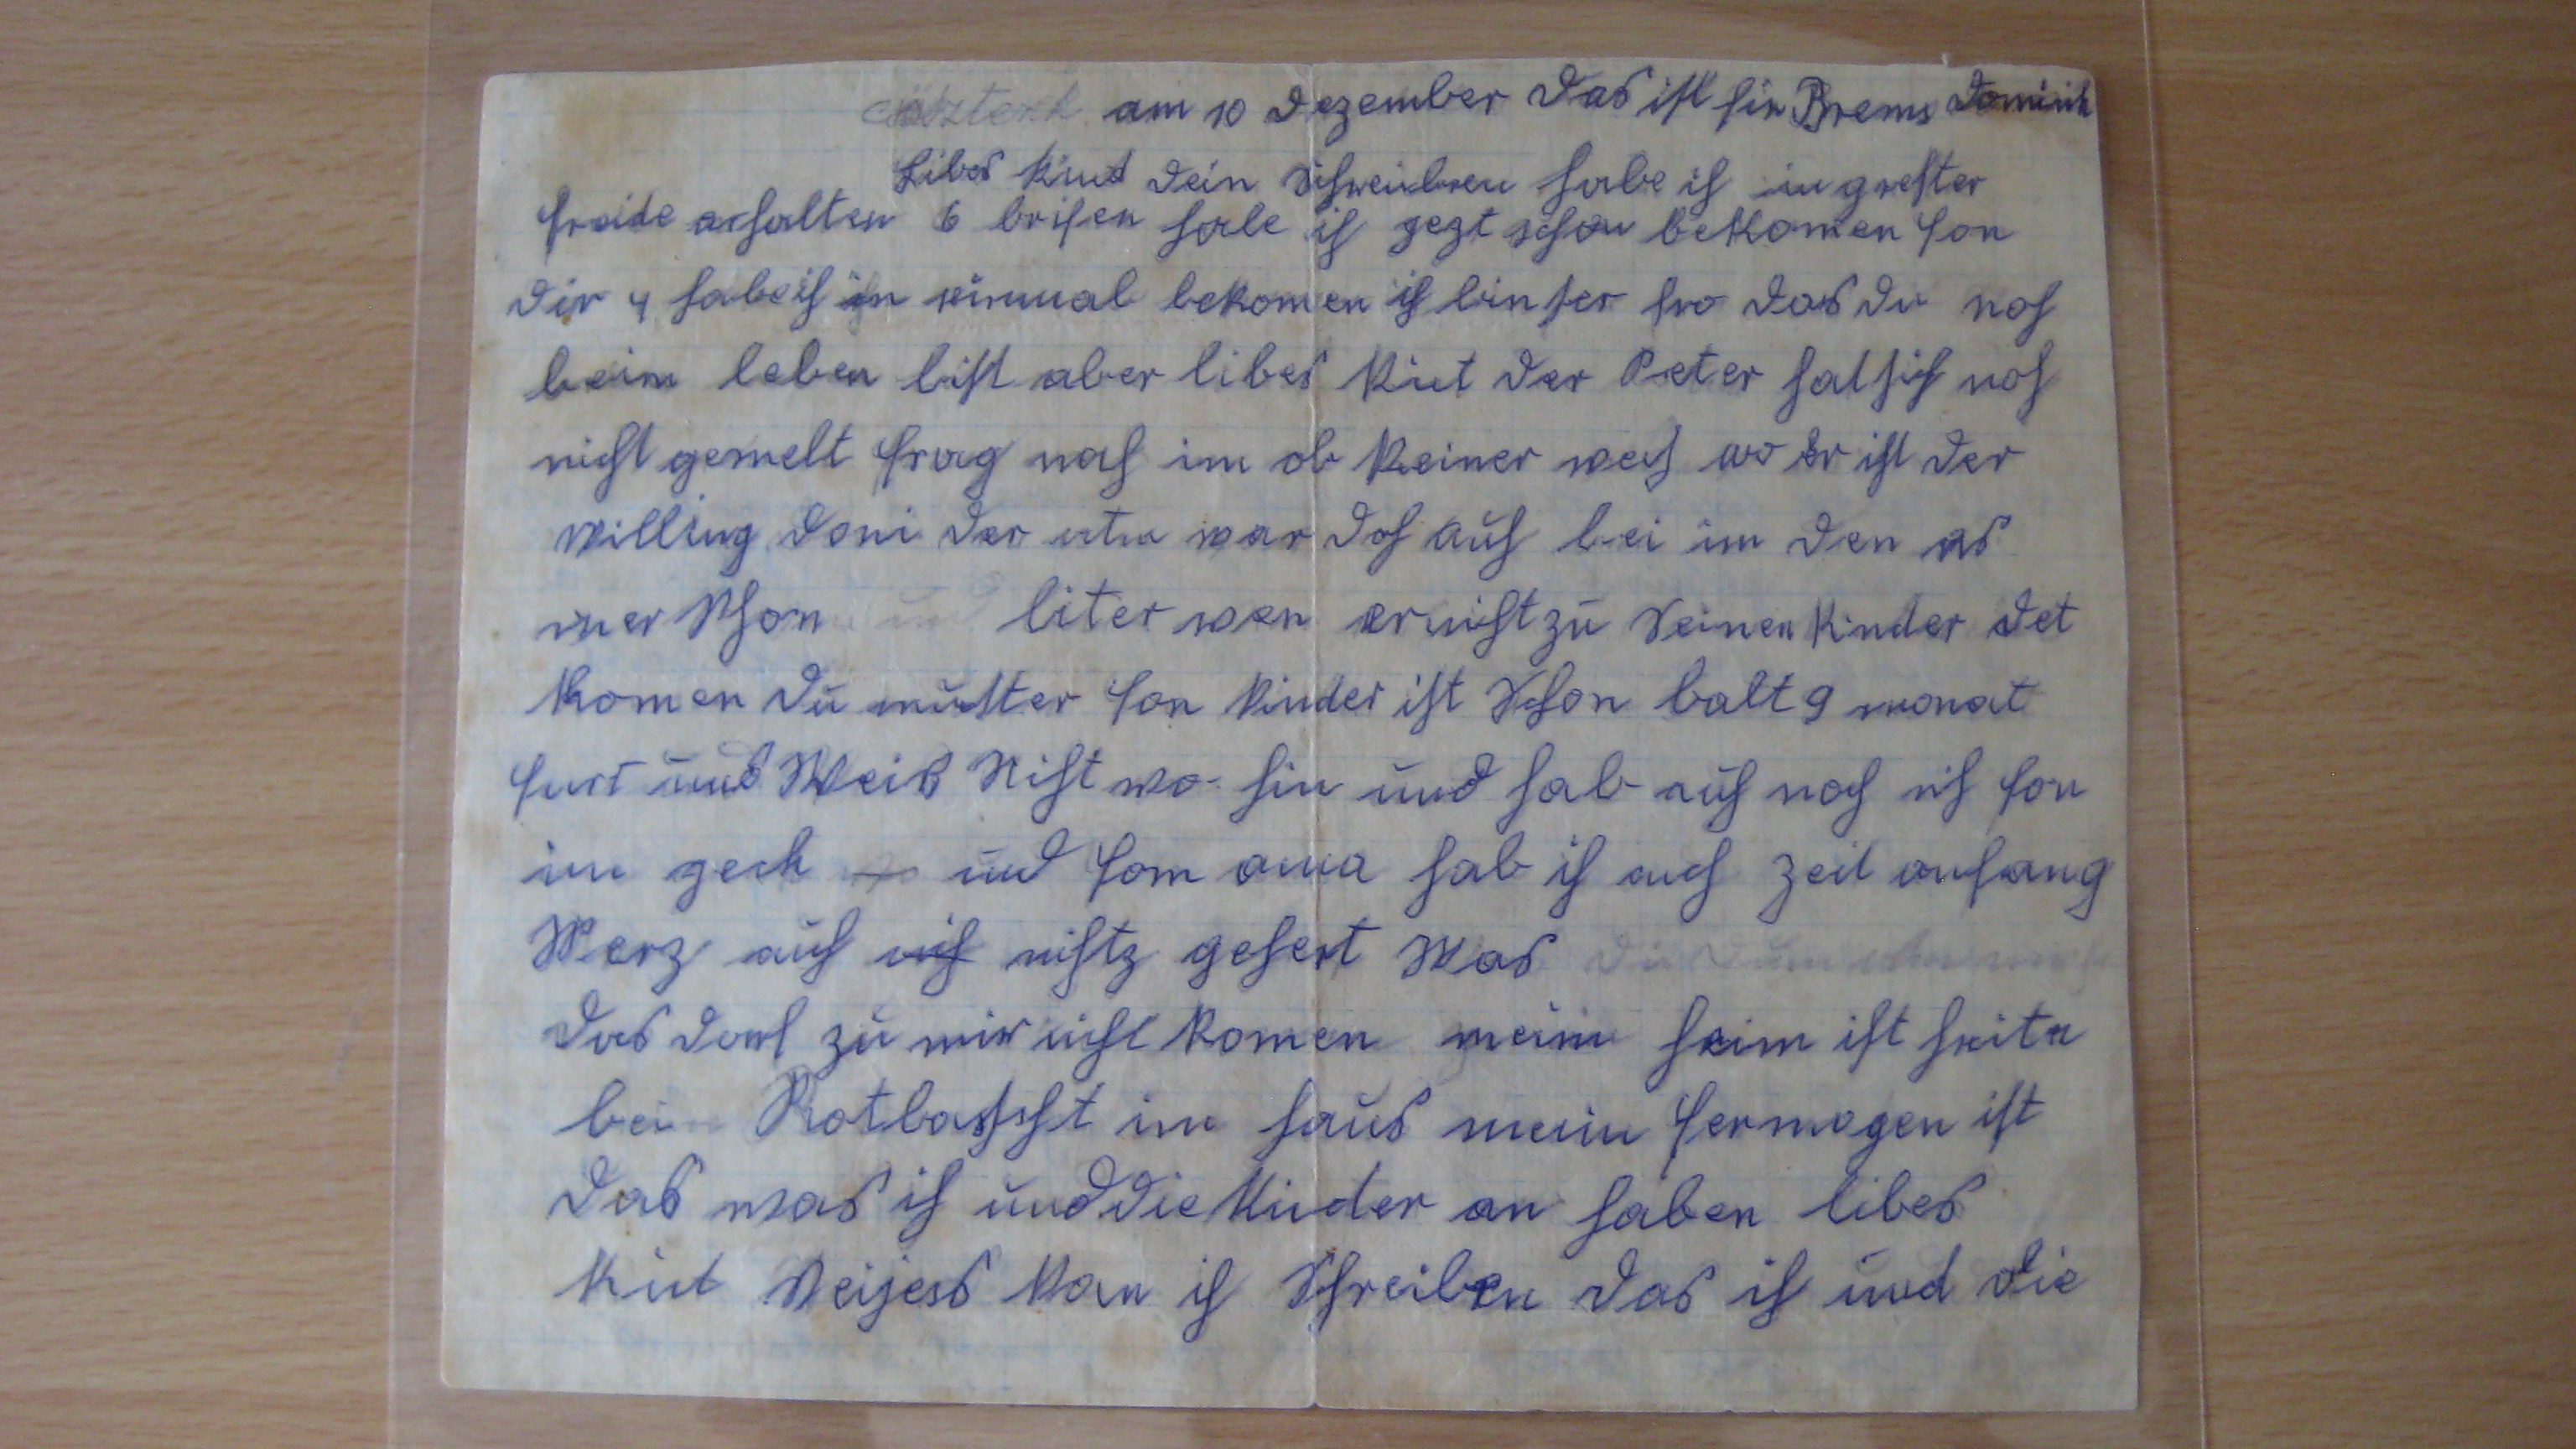 am 10 Dezember Das ist fir Brems Dominik
Libes Kint Dein Schreiben habe ich in grester
freide erhalten 6 brifen habe ich gezt schon bekomen fon
Dir 4 habe ich in einmal bekomen ich bin ser fro Das Du noch
beim leben bist aber libes Kint Der Peter hat sich noch
nicht gemelt frag nach im ob Keiner wech wo Er ist Der
Willing Doni Der war Doch auch bei im Den es
wer Schon liter wen er nicht zu Seinen Kinder Det
Komen Du mutter fon Kinder ist Schon balt 9 monat
furt und Weis Nicht wo hin und hab auch noch nich fon
im und fom ama hab ich auch Zeit anfang
Merz auch nichtz gehert Was
Das Dorf zu mir nicht Komen mein heim ist heite
bein im haus mein fermogen ist
Das was ich und Die Kinder an haben libes
Kint Kan ich Schreiben Das ich und die